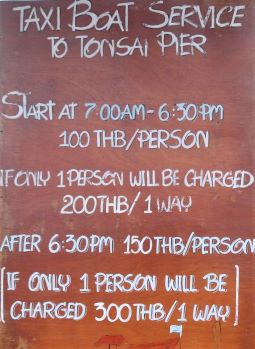 TAXI BOAT SERVICE
TO TONSAI PIER
START AT 7:00AM-6:30PM
100 THB/PERSON
IF ONLY 1 PERSON WILL BE CHARGED
200THB/1 WAY
AFTER 6:30PM 150THB/PERSON
[IF ONLY 1 PERSON WILL BE
CHARGED 300THB/1 WAY]